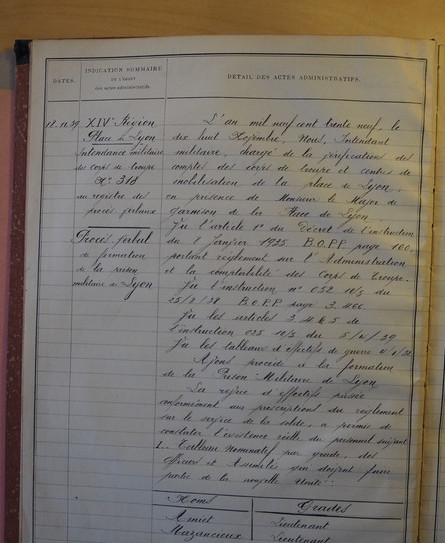 DATES.
INDICATION SOMMAIRE
DE L'OBJET
des actes administratifs.
DÉTAIL DES ACTES ADMINISTRATIFS.
18.11.39
XIVe Région
Place de Lyon
Intendance militaire
des corps de troupe
No 318
au registre des
procès verbaux
Procès verbal
de formation
de la prison
militaire de Lyon
L'an mil neuf cent trente neuf, le
dix huit Novembre, Nous, Intendant
militaire, chargé de la vérification des
comptes des corps de troupe et centres de
mobilisation de la place de Lyon,
en présence de Monsieur le Major de
Garnison de la Place de Lyon
Vu l'article 1er du Décret de l'instruction
du 1 Janvier 1935. B.O.P.P. page 100.
portant règlement sur l'Administration
et la comptabilité des Corps de Troupe.
Vu l'instruction no 052 10/5 du
25/2/38 B.O.P.P. page 3.466.
Vu les articles 3 4 & 5 de
l'instruction 025 10/5 du 5/4/39
Vu les tableaux d'effectifs de guerre
Avons procédé à la formation
de la Prison Militaire de Lyon
La revue d'effectifs passée
conformément aux prescriptions du règlement
sur le service de la solde, a permis de
constater l'existence réelle du personnel suivant
1.- Tableau Nominatif par grade, des
Officiers et Assimilés qui doivent faire
partie de la nouvelle Unité:
Noms
Grades
Amiet
Lieutenant
Mazancieux
Lieutenant